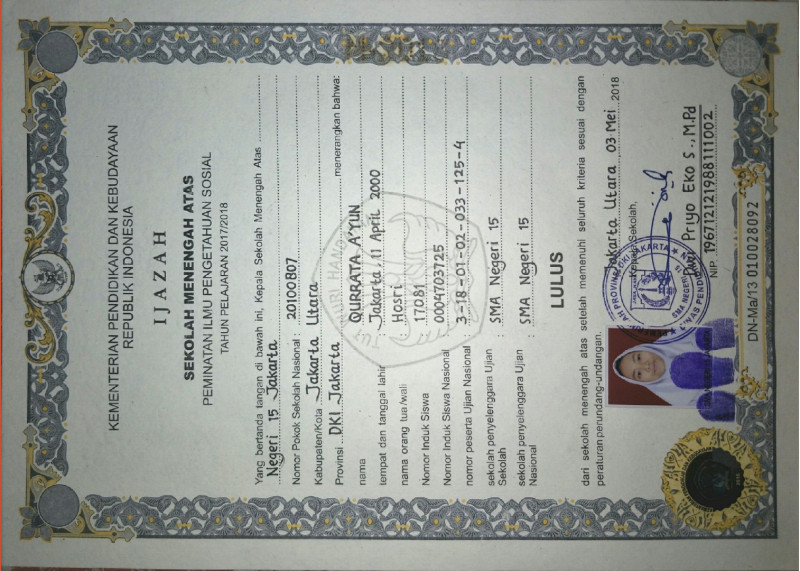 KEMENTERIAN PENDIDIKAN DAN KEBUDAYAAN
REPUBLIK INDONESIA
IJAZAH
SEKOLAH MENENGAH ATAS
PEMINATAN ILMU PENGETAHUAN SOSIAL
TAHUN PELAJARAN 2017/2018
Yang bertanda tangan di bawah ini, Kepala Sekolah Menengah Atas
Negeri 15 Jakarta
Nomor Pokok Sekolah Nasional : 20100807
Kabupaten/Kota Jakarta Utara
Provinsi DKI Jakarta menerangkan bahwa:
nama : QURRATA A'YUN
tempat dan tanggal lahir : Jakarta, 11 April 2000
nama orang tua/wali : Hosri
Nomor Induk Siswa : 17081
Nomor Induk Siswa Nasional : 0004703725
nomor peserta Ujian Nasional : 3-18-01-02-033-125-4
sekolah penyelenggara Ujian Sekolah : SMA Negeri 15
sekolah penyelenggara Ujian Nasional : SMA Negeri 15
LULUS
dari sekolah menengah atas setelah memenuhi seluruh kriteria sesuai dengan
peraturan perundang-undangan.
Jakarta Utara, 03 Mei 2018
Kepala Sekolah,
Dwi Priyo Eko S., M.Pd
NIP. 196712121988111002
DN-Ma/13 010028092